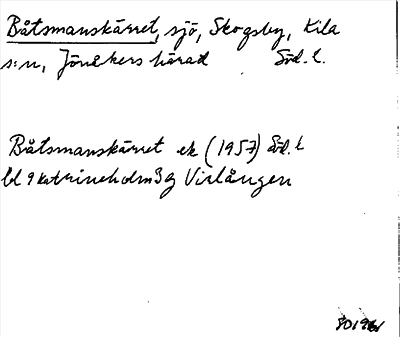 Båtsmanskärret, sjö, Skogsby, Kila
s:n, Jönåkers härad Söd. l.
Båtsmanskärret ek (1957) Söd. l
bl 9 Katrineholm 3g Virlången